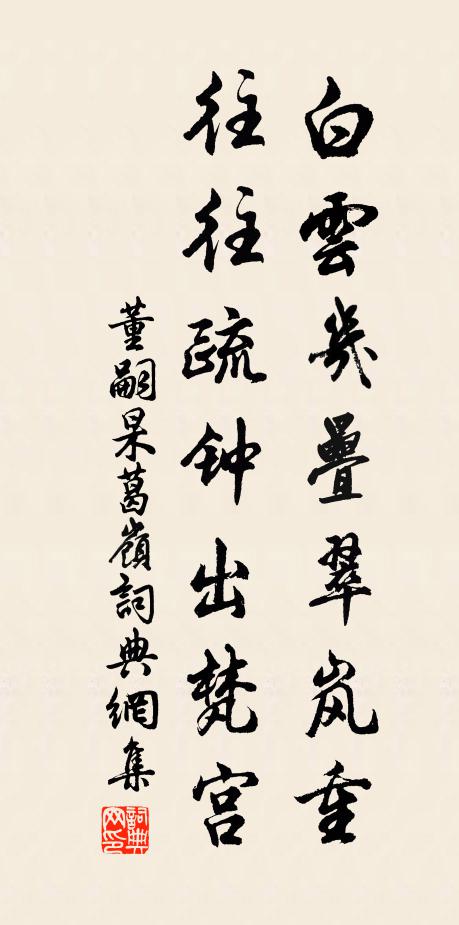 白雲幾疊翠岚重
往往疏钟出梵宫
董嗣杲葛嶺詞典網集
詞典网印